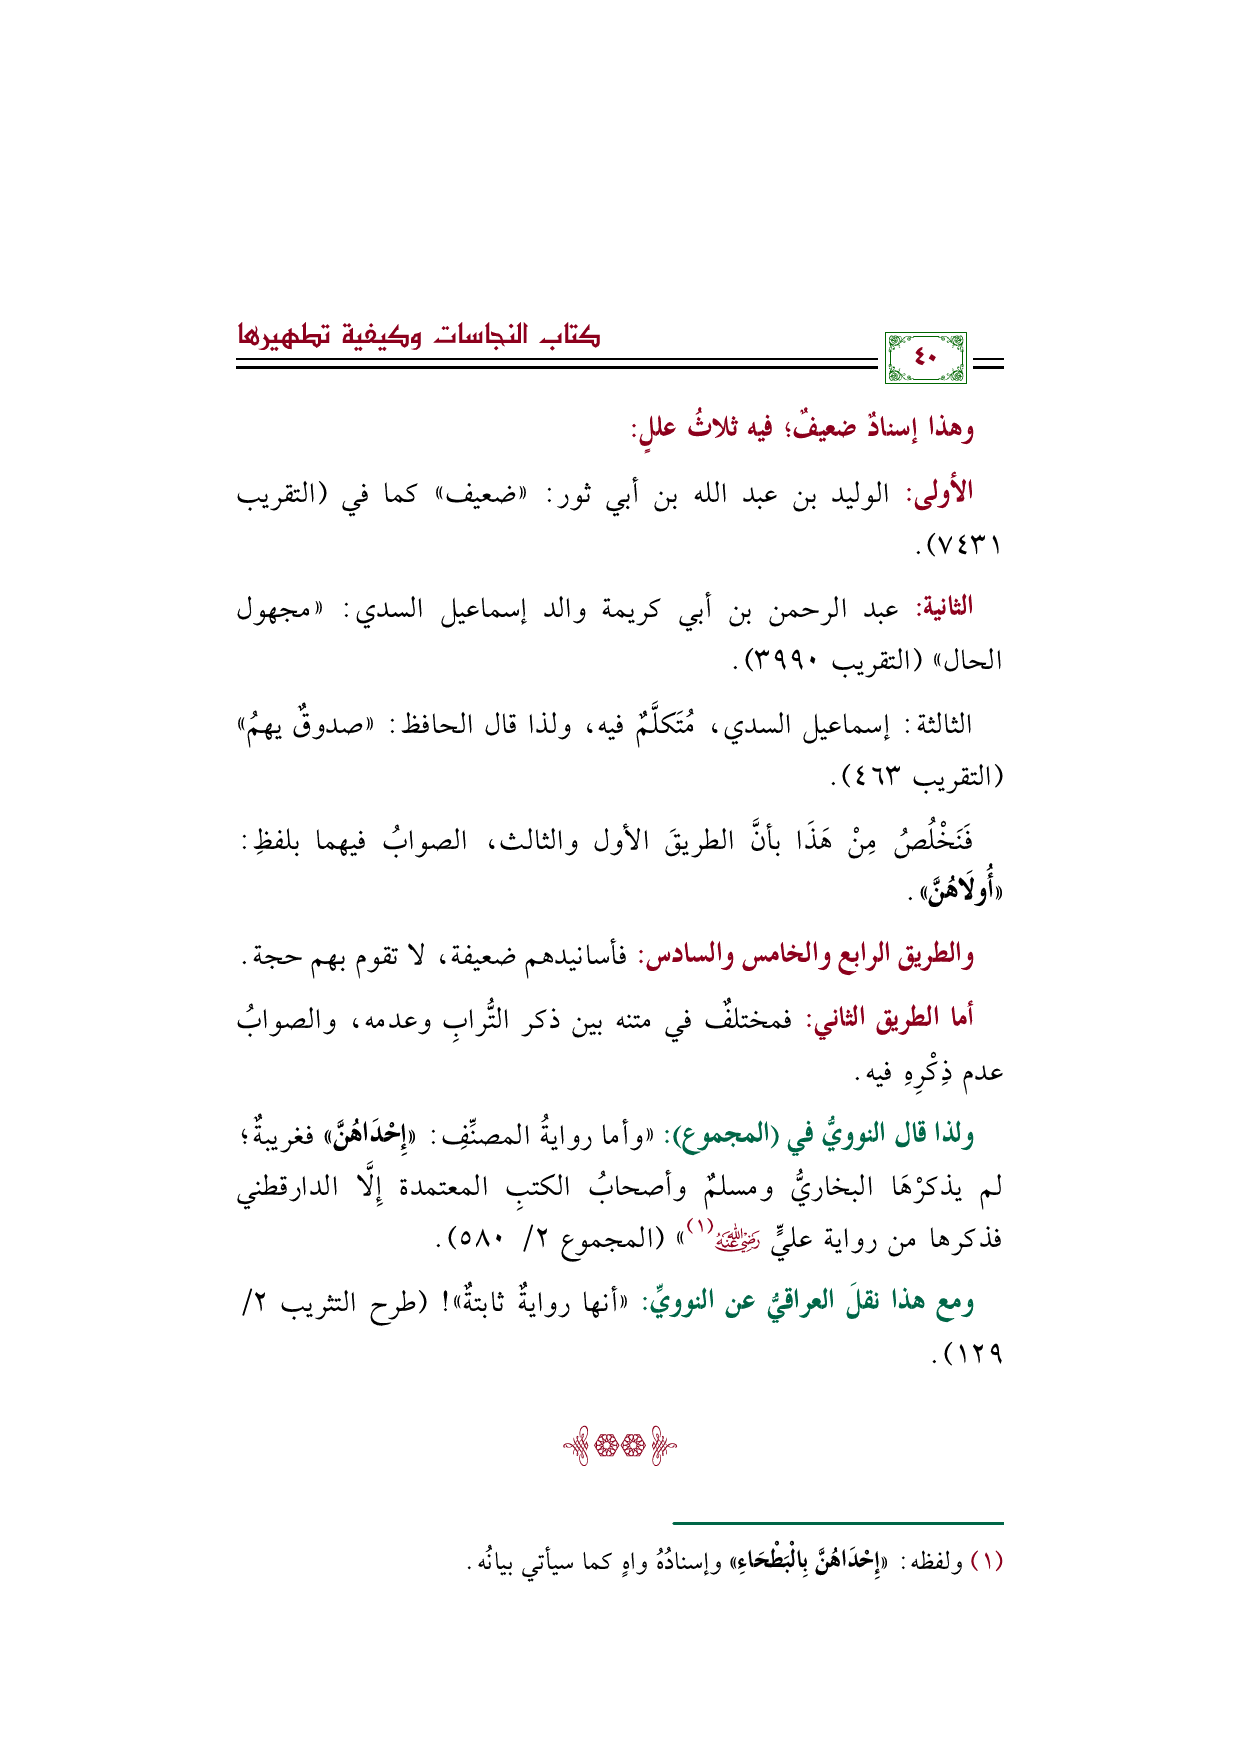 كتاب النجاسات وكيفية تطهيرها
٤٠
وهذا إسنادٌ ضعيفٌ؛ فيه ثلاثُ عللٍ:
الأولى: الوليد بن عبد الله بن أبي ثور: «ضعيف» كما في (التقريب
٧٤٣١).
الثانية: عبد الرحمن بن أبي كريمة والد إسماعيل السدي: «مجهول
الحال» (التقريب ٣٩٩٠).
الثالثة: إسماعيل السدي، مُتَكلَّمٌ فيه، ولذا قال الحافظ: «صدوقٌ يهمُ»
(التقريب ٤٦٣).
فَنَخْلُصُ مِنْ هَذَا بأنَّ الطريقَ الأول والثالث، الصوابُ فيهما بلفظِ:
«أُولَاهُنَّ».
والطريق الرابع والخامس والسادس: فأسانيدهم ضعيفة، لا تقوم بهم حجة.
أما الطريق الثاني: فمختلفٌ في متنه بين ذكر التُّرابِ وعدمه، والصوابُ
عدم ذِكْرِهِ فيه.
ولذا قال النوويُّ في (المجموع): «وأما روايةُ المصنِّفِ: «إِحْدَاهُنَّ» فغريبةٌ؛
لم يذكرْهَا البخاريُّ ومسلمٌ وأصحابُ الكتبِ المعتمدة إِلَّا الدارقطني
فذكرها من رواية عليٍّ رضي الله عنه(١)» (المجموع ٢/ ٥٨٠).
ومع هذا نقلَ العراقيُّ عن النوويِّ: «أنها روايةٌ ثابتةٌ»! (طرح التثريب ٢/
١٢٩).
(١) ولفظه: «إِحْدَاهُنَّ بِالْبَطْحَاءِ» وإسنادُهُ واهٍ كما سيأتي بيانُه.